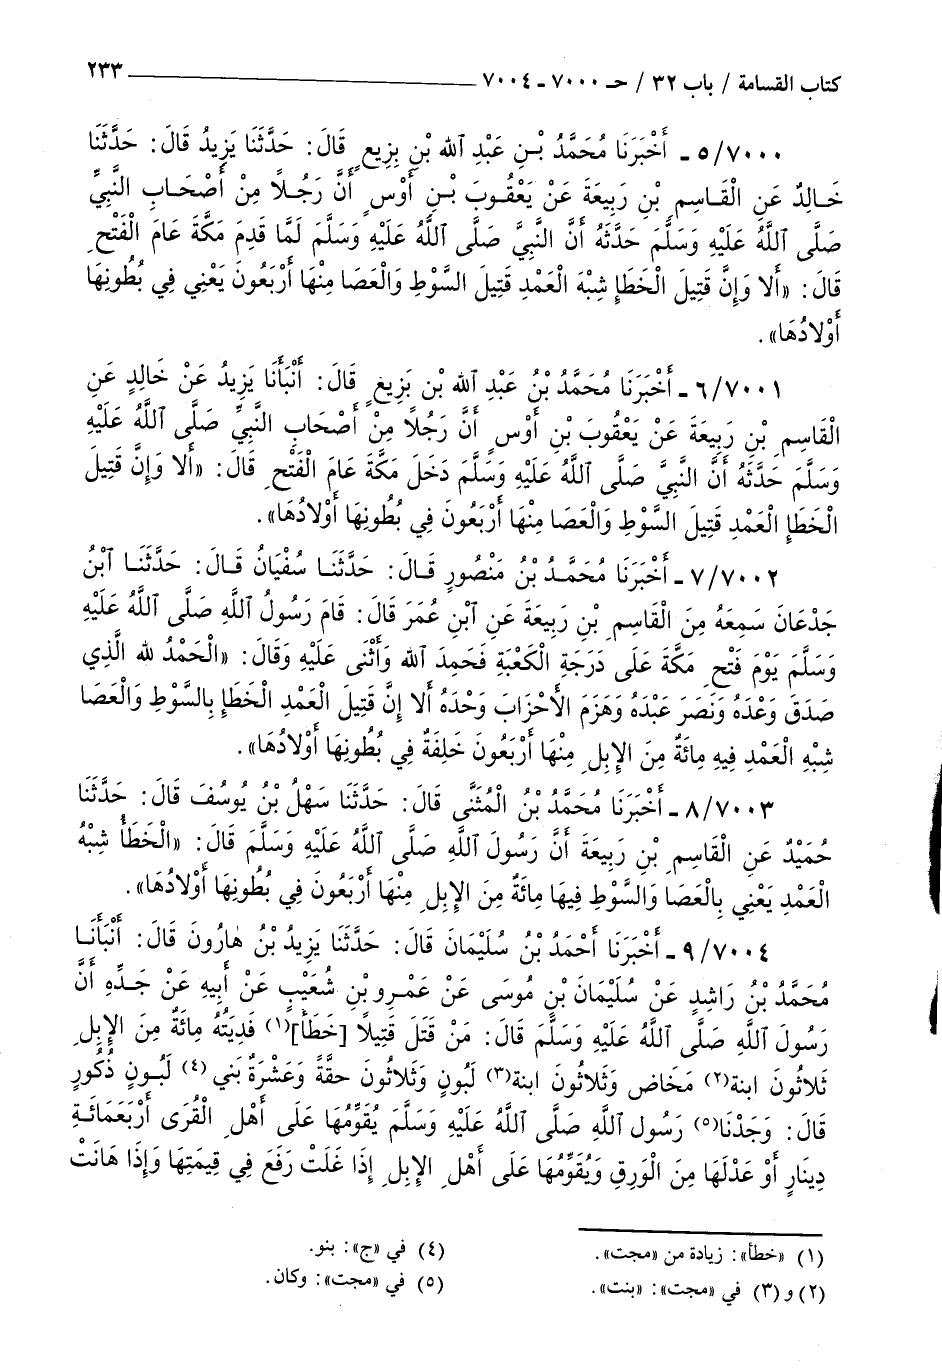 كتاب القسامة / باب ٣٢ / حـ ٧٠٠٠ ـ ٧٠٠٤ ٢٣٣
٥/٧٠٠٠ ـ أَخْبَرَنَا مُحَمَّدُ بْـنِ عَبْدِ ٱلله بْنِ بِزِيعٍ قَالَ: حَدَّثَنَا يَزِيدُ قَالَ: حَدَّثَنَا
خَـالِدٌ عَنِ الْقَـاسِمِ بْنِ رَبِيعَةَ عَنْ يَعْقُـوبَ بْـنِ أَوْسٍ أَنَّ رَجُـلًا مِنْ أَصْحَـابِ النَّبِيِّ
صَلَّى ٱللَّهُ عَلَيْهِ وَسَلَّمَ حَدَّثَهُ أَنَّ النَّبِيَّ صَلَّى ٱللَّهُ عَلَيْهِ وَسَلَّمَ لَمَّا قَدِمَ مَكَّةَ عَامَ الْفَتْحِ
قَالَ: «أَلا وَإِنَّ قَتِيلَ الْخَطَإِ شِبْهَ الْعَمْدِ قَتِيلَ السَّوْطِ وَالْعَصَا مِنْهَا أَرْبَعُونَ يَعْنِي فِي بُطُونِهَا
أَوْلادُهَا».
٦/٧٠٠١ ـ أَخْبَرَنَا مُحَمَّدُ بْنُ عَبْدِ ٱلله بْن بَزِيعٍ قَالَ: أَنْبَأَنَا يَزِيدُ عَنْ خَالِدٍ عَنِ
الْقَاسِمِ بْنِ رَبِيعَةَ عَنْ يَعْقُوبَ بْنِ أَوْسٍ أَنَّ رَجُلًا مِنْ أَصْحَابِ النَّبِيِّ صَلَّى ٱللَّهُ عَلَيْهِ
وَسَلَّمَ حَدَّثَهُ أَنَّ النَّبِيَّ صَلَّى ٱللَّهُ عَلَيْهِ وَسَلَّمَ دَخَلَ مَكَّةَ عَامَ الْفَتْحِ قَالَ: «أَلا وَإِنَّ قَتِيلَ
الْخَطَإِ الْعَمْدِ قَتِيلَ السَّوْطِ وَالْعَصَا مِنْهَا أَرْبَعُونَ فِي بُطُونِهَا أَوْلادُهَا».
٧/٧٠٠٢ ـ أَخْبَرَنَا مُحَمَّـدُ بْنُ مَنْصُورٍ قَـالَ: حَدَّثَنَـا سُفْيَانُ قَـالَ: حَدَّثَنَـا ٱبْنُ
جَدْعَانَ سَمِعَهُ مِنَ الْقَاسِمِ بْنِ رَبِيعَةَ عَنِ ٱبْنِ عُمَرَ قَالَ: قَامَ رَسُولُ ٱللَّهِ صَلَّى ٱللَّهُ عَلَيْهِ
وَسَلَّمَ يَوْمَ فَتْحِ مَكَّةَ عَلَى دَرَجَةِ الْكَعْبَةِ فَحَمِدَ ٱلله وَأَثْنَى عَلَيْهِ وَقَالَ: «الْحَمْدُ لله الَّذِي
صَدَقَ وَعْدَهُ وَنَصَرَ عَبْدَهُ وَهَزَمَ الأَحْزَابَ وَحْدَهُ أَلا إِنَّ قَتِيلَ الْعَمْدِ الْخَطَإِ بِالسَّوْطِ وَالْعَصَا
شِبْهِ الْعَمْدِ فِيهِ مِائَةٌ مِنَ الإِبِلِ مِنْهَا أَرْبَعُونَ خَلِفَةٌ فِي بُطُونِهَا أَوْلادُهَا».
٨/٧٠٠٣ ـ أَخْبَرَنَا مُحَمَّدُ بْنُ الْمُثَنَّى قَالَ: حَدَّثَنَا سَهْلُ بْنُ يُوسُفَ قَالَ: حَدَّثَنَا
حُمَيْدٌ عَنِ الْقَاسِمِ بْنِ رَبِيعَةَ أَنَّ رَسُولَ ٱللَّهِ صَلَّى ٱللَّهُ عَلَيْهِ وَسَلَّمَ قَالَ: «الْخَطَأُ شِبْهُ
الْعَمْدِ يَعْنِي بِالْعَصَا وَالسَّوْطِ فِيهَا مِائَةٌ مِنَ الإِبِلِ مِنْهَا أَرْبَعُونَ فِي بُطُونِهَا أَوْلادُهَا».
٩/٧٠٠٤ ـ أَخْبَرَنَا أَحْمَدُ بْنُ سُلَيْمَانَ قَالَ: حَدَّثَنَا يَزِيدُ بْنُ هَارُونَ قَالَ: أَنْبَأَنَـا
مُحَمَّدُ بْنُ رَاشِدٍ عَنْ سُلَيْمَانَ بْنِ مُوسَى عَنْ عَمْـرِو بْنِ شُعَيْبٍ عَنْ أَبِيهِ عَنْ جَـدِّهِ أَنَّ
رَسُولَ ٱللَّهِ صَلَّى ٱللَّهُ عَلَيْهِ وَسَلَّمَ قَالَ: مَنْ قَتَلَ قَتِيلًا [خَطَأً](١) فَدِيَتُهُ مِائَةٌ مِنَ الإِبِلِ
ثَلاثُونَ ابنة(٢) مَخَاض وَثَلاثُونَ ابنة(٣) لَبُونٍ وَثَلاثُونَ حقَّةً وَعَشْرَةُ بني (٤) لَبُـونٍ ذُكُورٍ
قَالَ: وَجَدْنَا(٥) رَسُول ٱللَّهِ صَلَّى ٱللَّهُ عَلَيْهِ وَسَلَّمَ يُقَوِّمُهَا عَلَى أَهْلِ الْقُرَى أَرْبَعَمَائَـةِ
دِينَارٍ أَوْ عَدْلَهَا مِنَ الْوَرِقِ وَيُقَوِّمُهَا عَلَى أَهْلِ الإِبِلِ إِذَا غَلَتْ رَفَعَ فِي قِيمَتِهَا وَإِذَا هَانَتْ
(١) «خطأ»: زيادة من «مجت».
(٢) و (٣) في «مجت»: «بنت».
(٤) في «ج»: بنو.
(٥) في «مجت»: وكان.